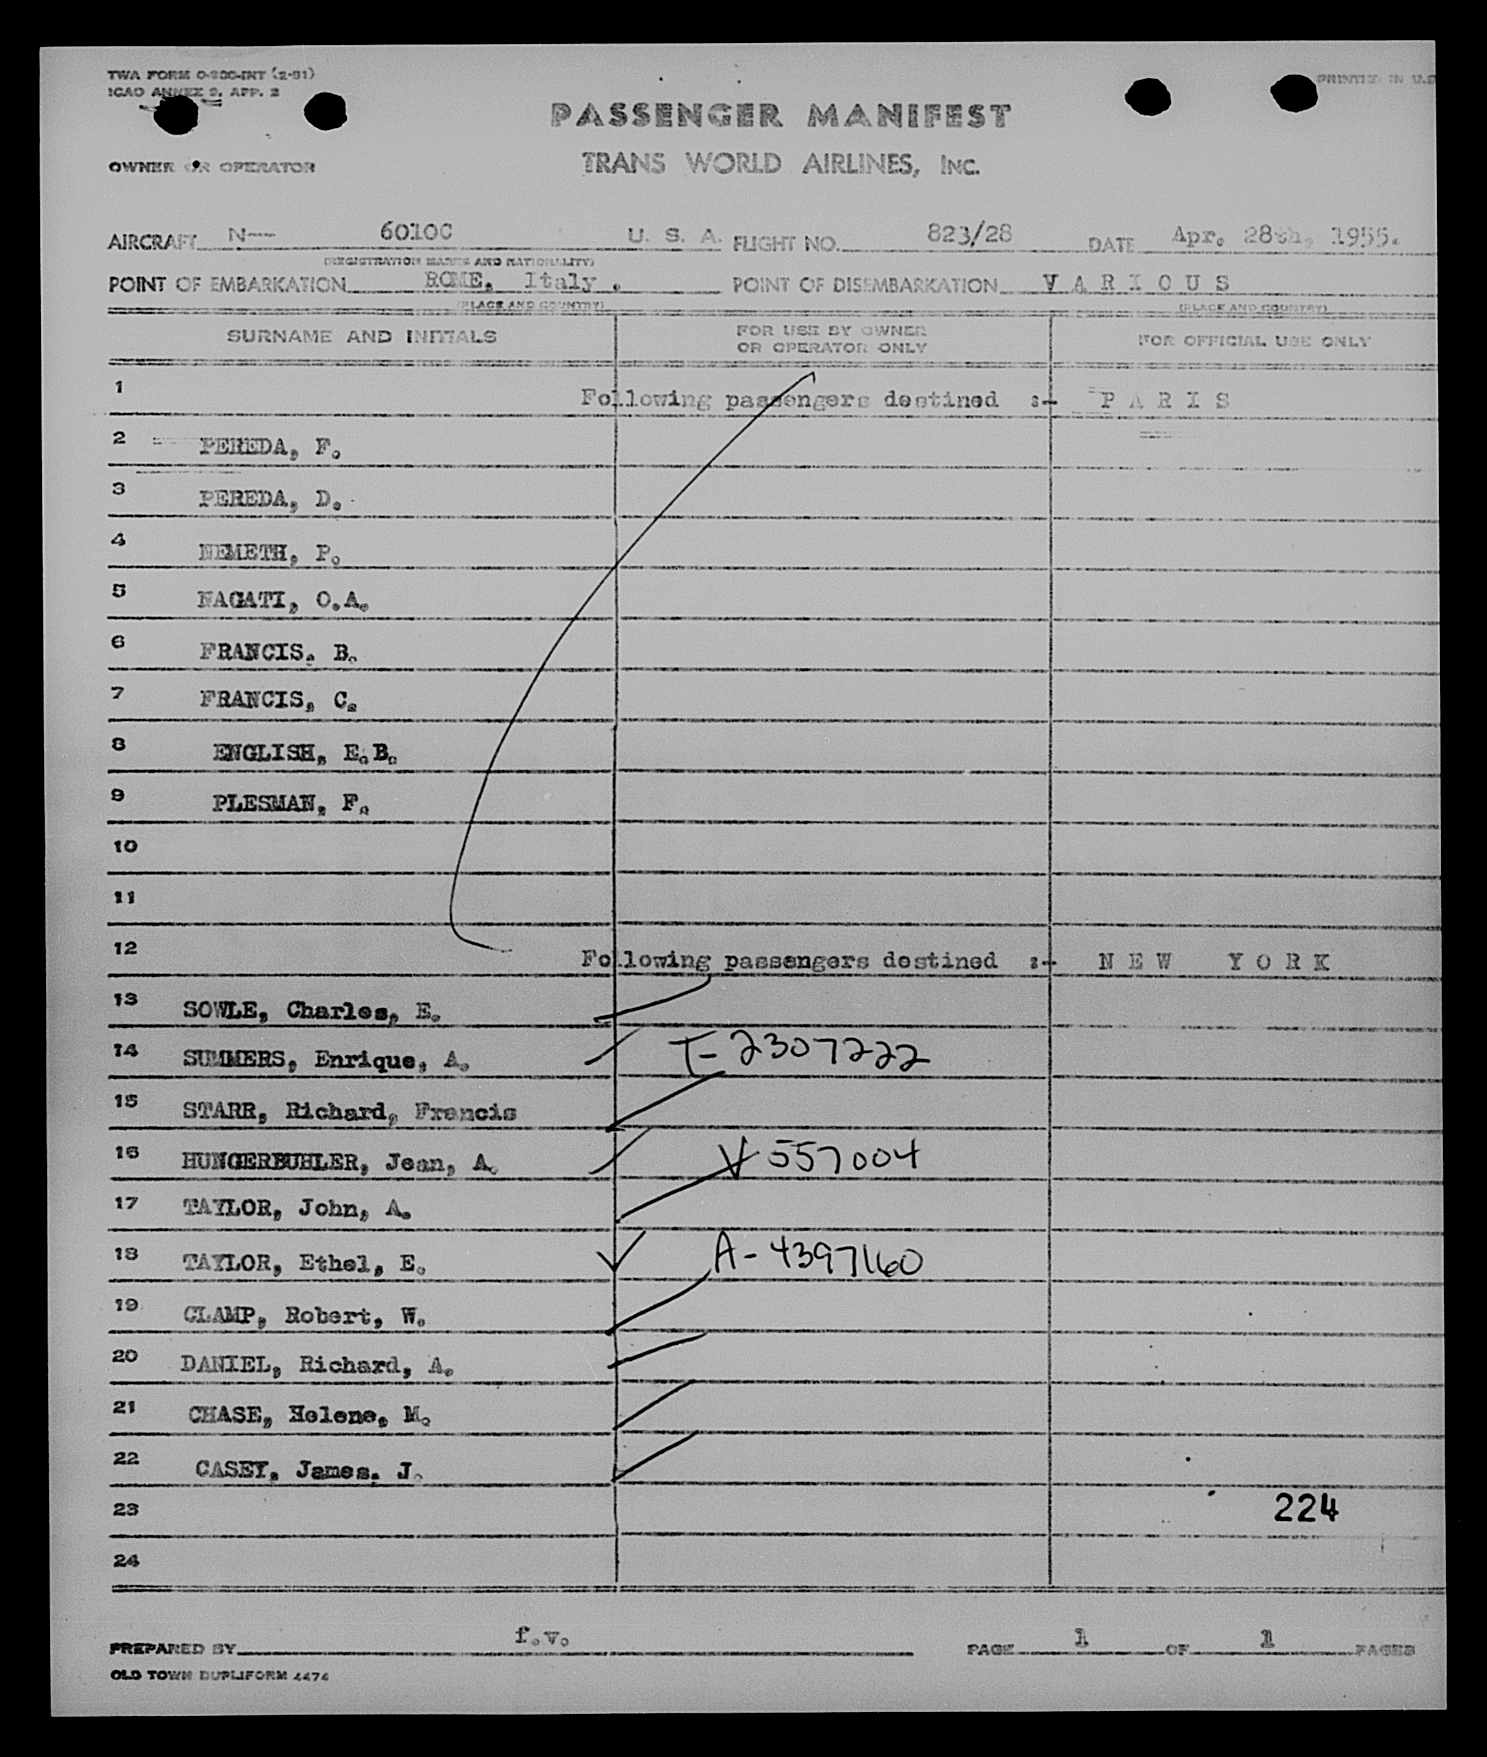 TWA FORM O-200-INT (2-51)
ICAO ANNEX 9, APP. 2
PRINTED IN U.S
PASSENGER MANIFEST
OWNER OR OPERATOR
TRANS WORLD AIRLINES, INC.
AIRCRAFT N-- 6010C U. S. A. FLIGHT NO. 823/28 DATE Apr. 28th, 1955.
(REGISTRATION MARKS AND NATIONALITY)
POINT OF EMBARKATION ROME, Italy . POINT OF DISEMBARKATION V A R I O U S
(PLACE AND COUNTRY) (PLACE AND COUNTRY)
SURNAME AND INITIALS FOR USE BY OWNER OR OPERATOR ONLY FOR OFFICIAL USE ONLY
1 Following passengers destined :- P A R I S
2 PEREDA, F.
3 PEREDA, D.
4 NEMETH, P.
5 NAGATI, O.A.
6 FRANCIS, B.
7 FRANCIS, C.
8 ENGLISH, E.B.
9 PLESMAN, F.
10
11
12 Following passengers destined :- N E W Y O R K
13 SOWLE, Charles, E.
14 SUMMERS, Enrique, A. T-2307222
15 STARR, Richard, Francis
16 HUNGERBUHLER, Jean, A. V 557004
17 TAYLOR, John, A.
18 TAYLOR, Ethel, E. A-4397160
19 CLAMP, Robert, W.
20 DANIEL, Richard, A.
21 CHASE, Helene, M.
22 CASEY, James, J.
23 224
24
PREPARED BY f.v. PAGE 1 OF 1 PAGES
OLD TOWN DUPLIFORM 4474